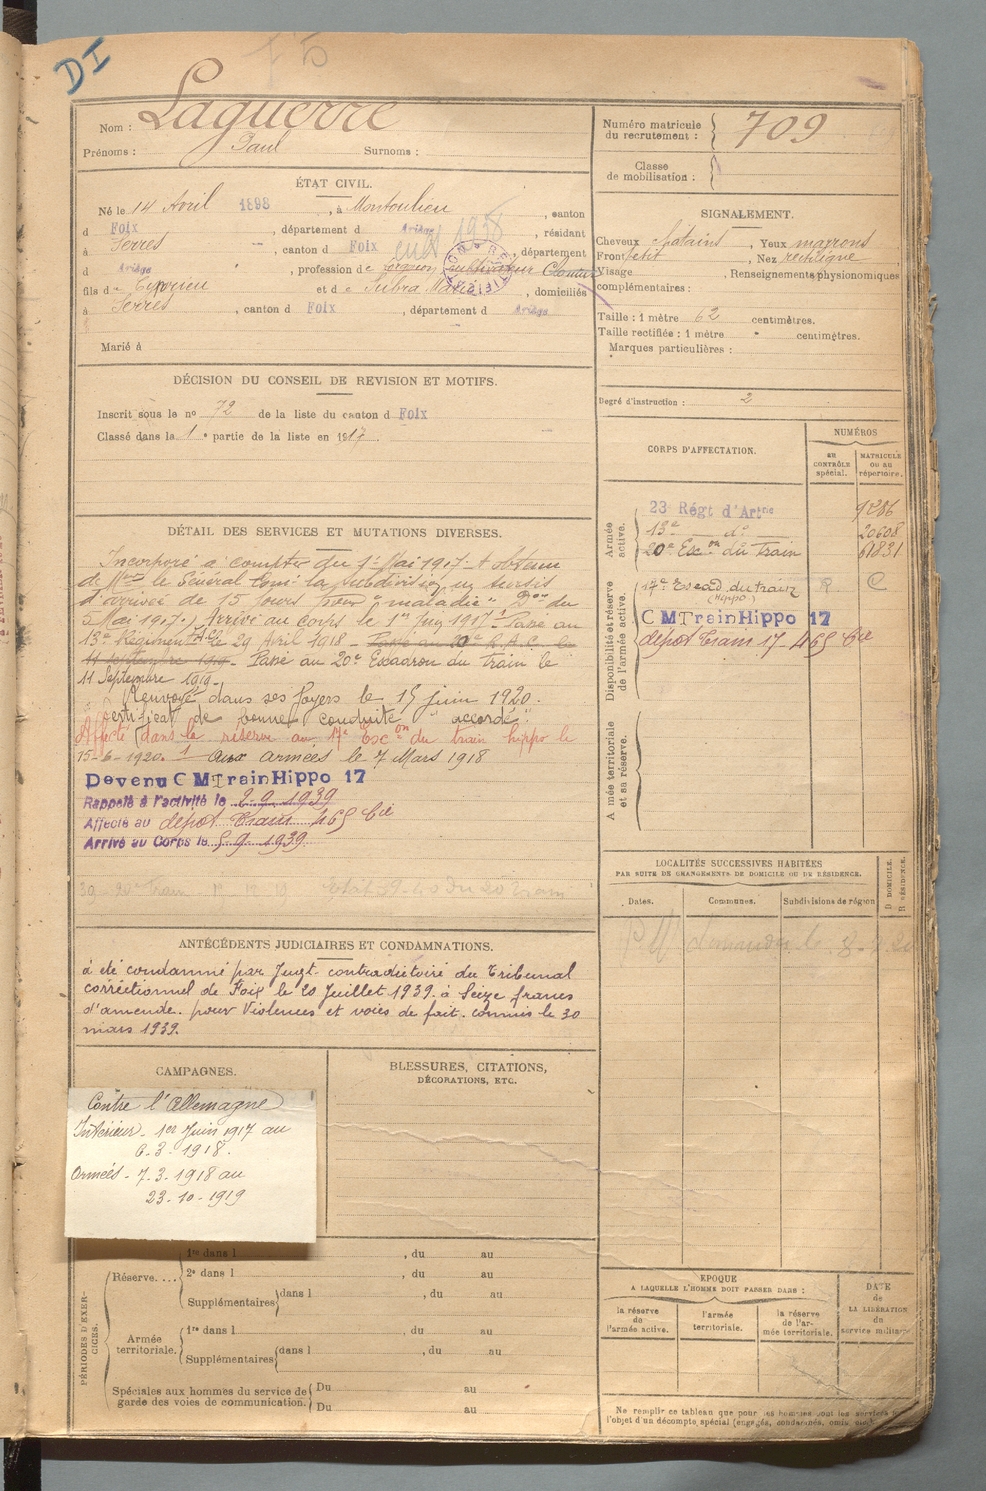 DI
75
Nom : Laguerre
Prénoms : Paul Surnoms :
Numéro matricule du recrutement : 709
Classe de mobilisation :
ÉTAT CIVIL.
Né le 14 Avril 1898, à Montoulieu, canton
d Foix, département d Ariège, résidant
à Serres, canton d Foix, département
d Ariège, profession de cultivateur
fils de Cyprien et de Subra Marie, domiciliés
à Serres, canton d Foix, département d Ariège
Marié à
SIGNALEMENT.
Cheveux chatains, Yeux marrons
Front petit, Nez rectiligne
Visage, Renseignements physionomiques
complémentaires :
Taille : 1 mètre 62 centimètres.
Taille rectifiée : 1 mètre " centimètres.
Marques particulières :
Degré d'instruction : 2
DÉCISION DU CONSEIL DE REVISION ET MOTIFS.
Inscrit sous le no 72 de la liste du canton d Foix
Classé dans la 1e partie de la liste en 1917.
CORPS D'AFFECTATION.
NUMÉROS
AU CONTRÔLE spécial.
MATRICULE OU AU répertoire.
Armée active.
23 Régt d'Artne
13e do 20608
20e Escon du Train 61831
Disponibilité et réserve de l'armée active.
17e Escad. du train R C
(Hippo)
C M Train Hippo 17
dépot Train 17 - 465 Cie
Armée territoriale et sa réserve.
DÉTAIL DES SERVICES ET MUTATIONS DIVERSES.
Incorporé à compter du 1er Mai 1917 - A obtenu
de Mr le Général Comt la subdivision un sursis
d'arrivée de 15 jours pour "maladie" Don du
5 Mai 1917. Arrivé au corps le 1er Juin 1917. Passé au
13e Régiment le 29 Avril 1918 - Passé au 20e R.A.C. le
11 septembre 1919 - Passé au 20e Escadron du train le
11 Septembre 1919 -
Renvoyé dans ses foyers le 15 juin 1920.
certificat de bonne conduite "accordé".
Affecté dans la réserve au 17e Escon du train hippo le
15-6-1920. Aux armées le 7 Mars 1918
Devenu C M Train Hippo 17
Rappelé à l'activité le 2.9.1939
Affecté au dépot Train 465 Cie
Arrivé au Corps le 5.9.1939
LOCALITÉS SUCCESSIVES HABITÉES
PAR SUITE DE CHANGEMENTS DE DOMICILE OU DE RÉSIDENCE.
Dates. Communes. Subdivisions de région
D DOMICILE.
R RÉSIDENCE.
ANTÉCÉDENTS JUDICIAIRES ET CONDAMNATIONS.
à été condamné par Jugt. contradictoire du Tribunal
correctionnel de Foix le 20 Juillet 1939. à Seize francs
d'amende. pour Violences et voies de fait. commis le 30
mars 1939.
CAMPAGNES.
Contre l'Allemagne
Intérieur - 1er Juin 1917 au
6.3.1918.
Armées - 7.3.1918 au
23-10-1919
BLESSURES, CITATIONS,
DÉCORATIONS, ETC.
PÉRIODES D'EXERCICES.
Réserve....
1re dans l , du au
2e dans l , du au
Supplémentaires dans l , du au
Armée territoriale.
1re dans l , du au
Supplémentaires dans l , du au
Spéciales aux hommes du service de garde des voies de communication.
Du au
Du au
EPOQUE
A LAQUELLE L'HOMME DOIT PASSER DANS :
la réserve de l'armée active.
l'armée territoriale.
la réserve de l'armée territoriale.
DATE de LA LIBÉRATION du service militaire
Ne remplir ce tableau que pour les hommes dont les services
l'objet d'un décompte spécial (engagés, condamnés, omis,